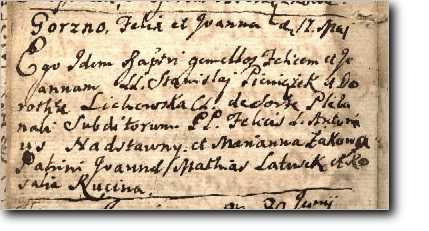 Gorzno, Felix et Joanna d. 17. Maj
Ego Idem bapt̄vi gemellos Felicem et Jo
annam LL. Stanislaj Pieniezek et Do
rothæ Lichowska CL. de Pleba
nali Subditorum PP. Felicis S. Antoni
us Nadstawny et Marianna Żakowa
Patrini Joannæ Mathias Latusek et Ro
salia Kucina.
30 Junij